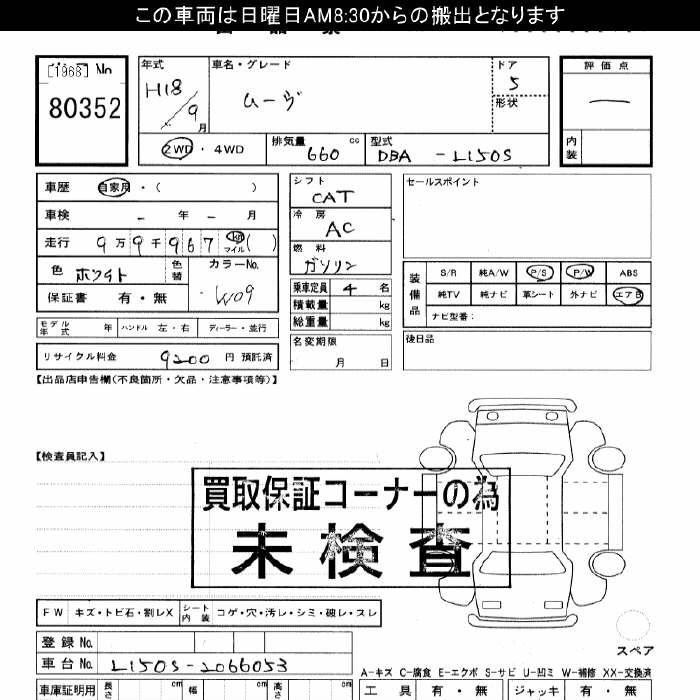 この車両は日曜日AM8:30からの搬出となります
[1968] No
80352
年式 H18/9月
車名・グレード ムーヴ
ドア 5
形状
評価点 ー
内装
2WD ・ 4WD
排気量 660 cc
型式 DBA - L150S
車歴 自家用・( )
車検 - 年 - 月
走行 9万9千967 km マイル ( )
色 ホワイト 色替
カラーNo. W09
保証書 有・無
モデル年式 年 ハンドル 左・右 ディーラー・並行
リサイクル料金 9200 円 預託済
シフト CAT
冷房 AC
燃料 ガソリン
乗車定員 4 名
積載量 kg
総重量 kg
名変期限 月 日
セールスポイント
装備品
S/R 純A/W P/S P/W ABS
純TV 純ナビ 革シート 外ナビ エアB
ナビ型番:
後日品
【出品店申告欄(不良箇所・欠品・注意事項等)】
【検査員記入】
買取保証コーナーの為
未検査
FW キズ・トビ石・割レX シート内装 コゲ・穴・汚レ・シミ・破レ・スレ
登録 No.
車台 No. L150S-2066053
スペア
A-キズ C-腐食 E-エクボ S-サビ U-凹ミ W-補修 XX-交換済
車庫証明用 長さ cm 幅 cm 高さ cm
工具 有・無 ジャッキ 有・無